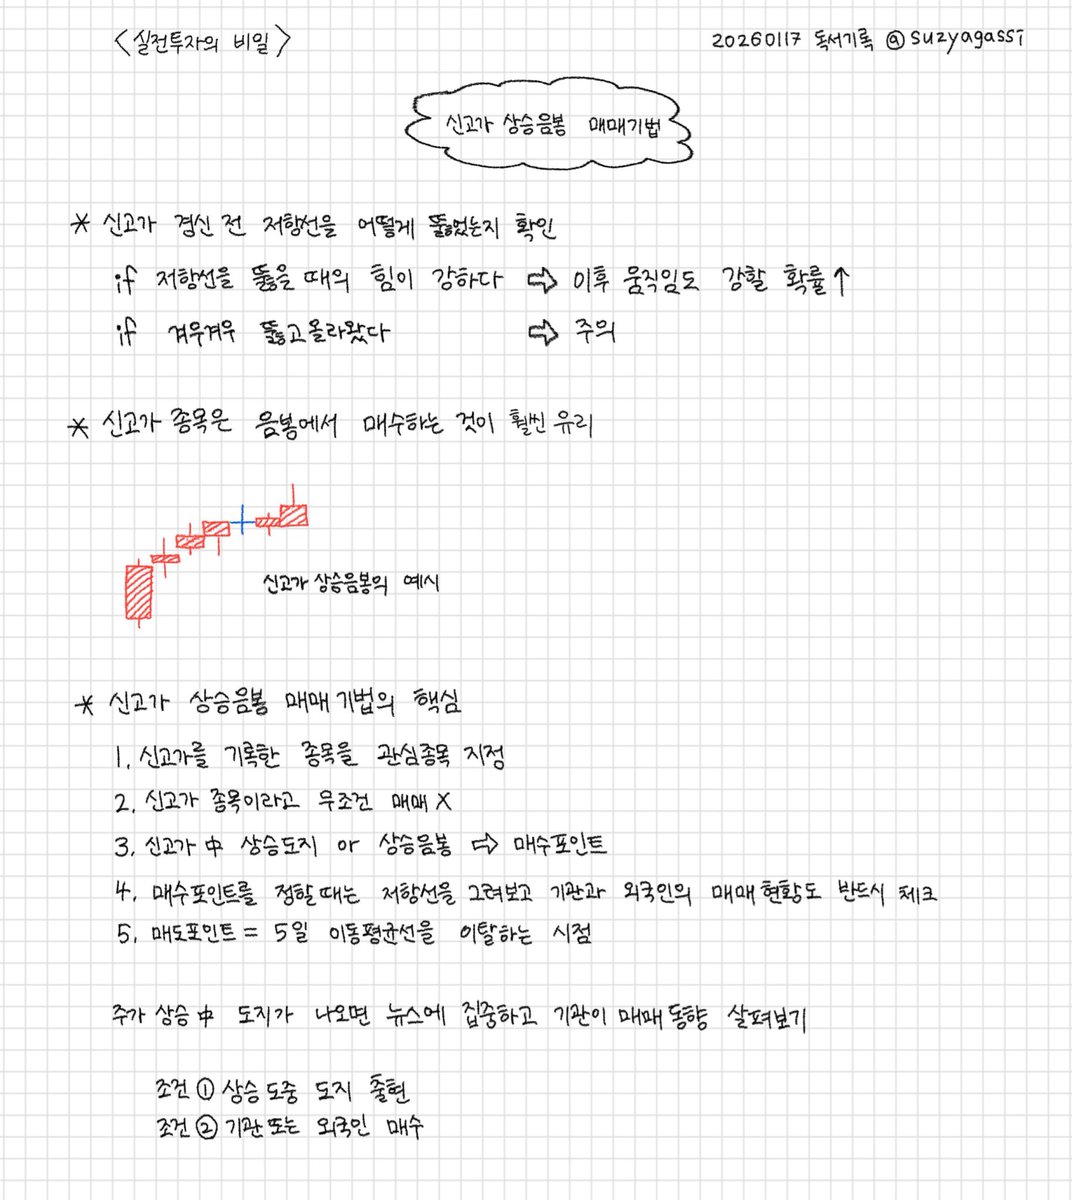 <실전투자의 비밀>
20260117 독서기록 @suzyagassi
신고가 상승음봉 매매기법
* 신고가 갱신 전 저항선을 어떻게 뚫었는지 확인
if 저항선을 뚫을 때의 힘이 강하다 ⇨ 이후 움직임도 강할 확률↑
if 겨우겨우 뚫고 올라왔다 ⇨ 주의
* 신고가 종목은 음봉에서 매수하는 것이 훨씬 유리
신고가 상승음봉의 예시
* 신고가 상승음봉 매매기법의 핵심
1. 신고가를 기록한 종목을 관심종목 지정
2. 신고가 종목이라고 무조건 매매 X
3. 신고가 中 상승도지 or 상승음봉 ⇨ 매수포인트
4. 매수포인트를 정할 때는 저항선을 그려보고 기관과 외국인의 매매 현황도 반드시 체크
5. 매도포인트 = 5일 이동평균선을 이탈하는 시점
주가 상승 中 도지가 나오면 뉴스에 집중하고 기관이 매매 동향 살펴보기
조건 ① 상승 도중 도지 출현
조건 ② 기관 또는 외국인 매수